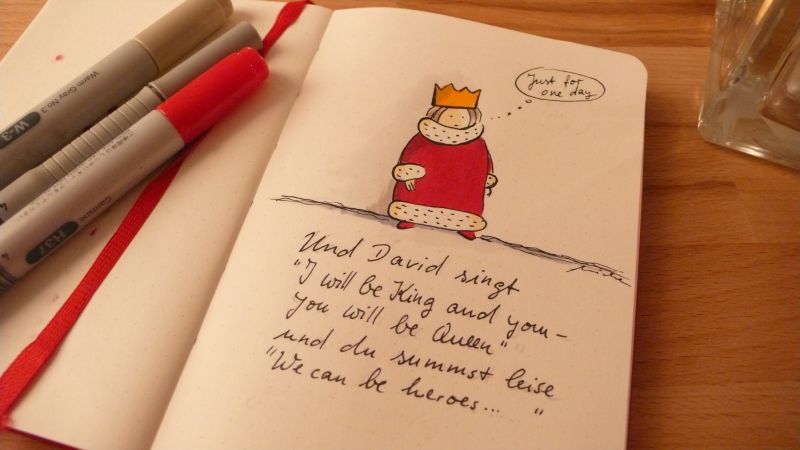 Just for
one day
Und David singt
"I will be King and you –
you will be Queen"
und du summst leise
"We can be heroes... "
Warm Gray No.3
W-3